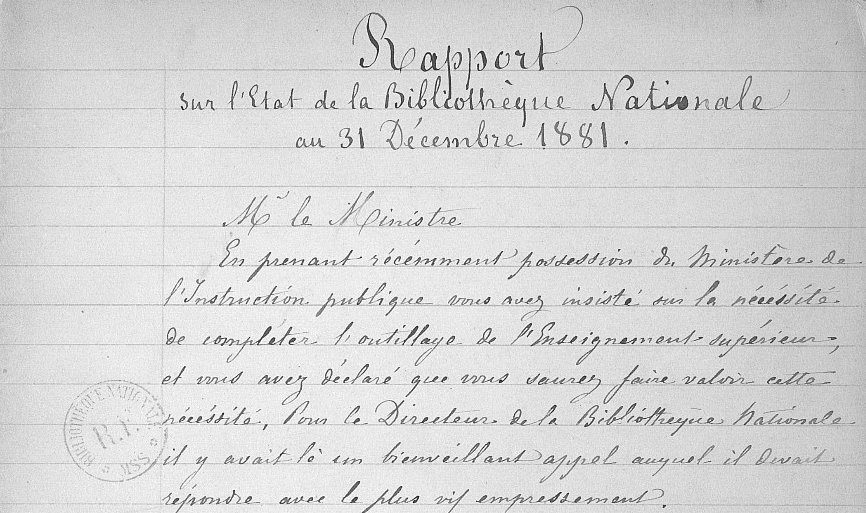 Rapport
sur l'Etat de la Bibliothèque Nationale
au 31 Décembre 1881.
Mr le Ministre
En prenant récemment possession du Ministère de
l'Instruction publique vous avez insisté sur la nécéssité
de compléter l'outillage de l'Enseignement supérieur,
et vous avez déclaré que vous saurez faire valoir cette
nécéssité, Pour le Directeur de la Bibliothèque Nationale
il y avait là un bienveillant appel auquel il devait
répondre avec le plus vif empressement.
BIBLIOTHÈQUE NATIONALE
R.F.
MSS